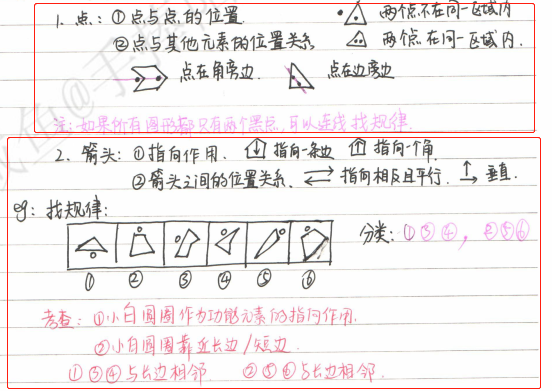 1. 点：①点与点的位置. 两个点不在同一区域内
②点与其他元素的位置关系 两个点在同一区域内.
点在角旁边. 点在边旁边
注：如果所有图形都只有两个黑点，可以连线找规律.
2. 箭头：①指向作用. 指向一条边 指向一个角.
②箭头之间的位置关系. 指向相反且平行. 垂直.
eg：找规律：
分类：①③④，②⑤⑥
① ② ③ ④ ⑤ ⑥
考查：①小白圆圈作为功能元素的指向作用.
②小白圆圈靠近长边/短边.
①③④与长边相邻. ②⑤⑥与长边相邻.